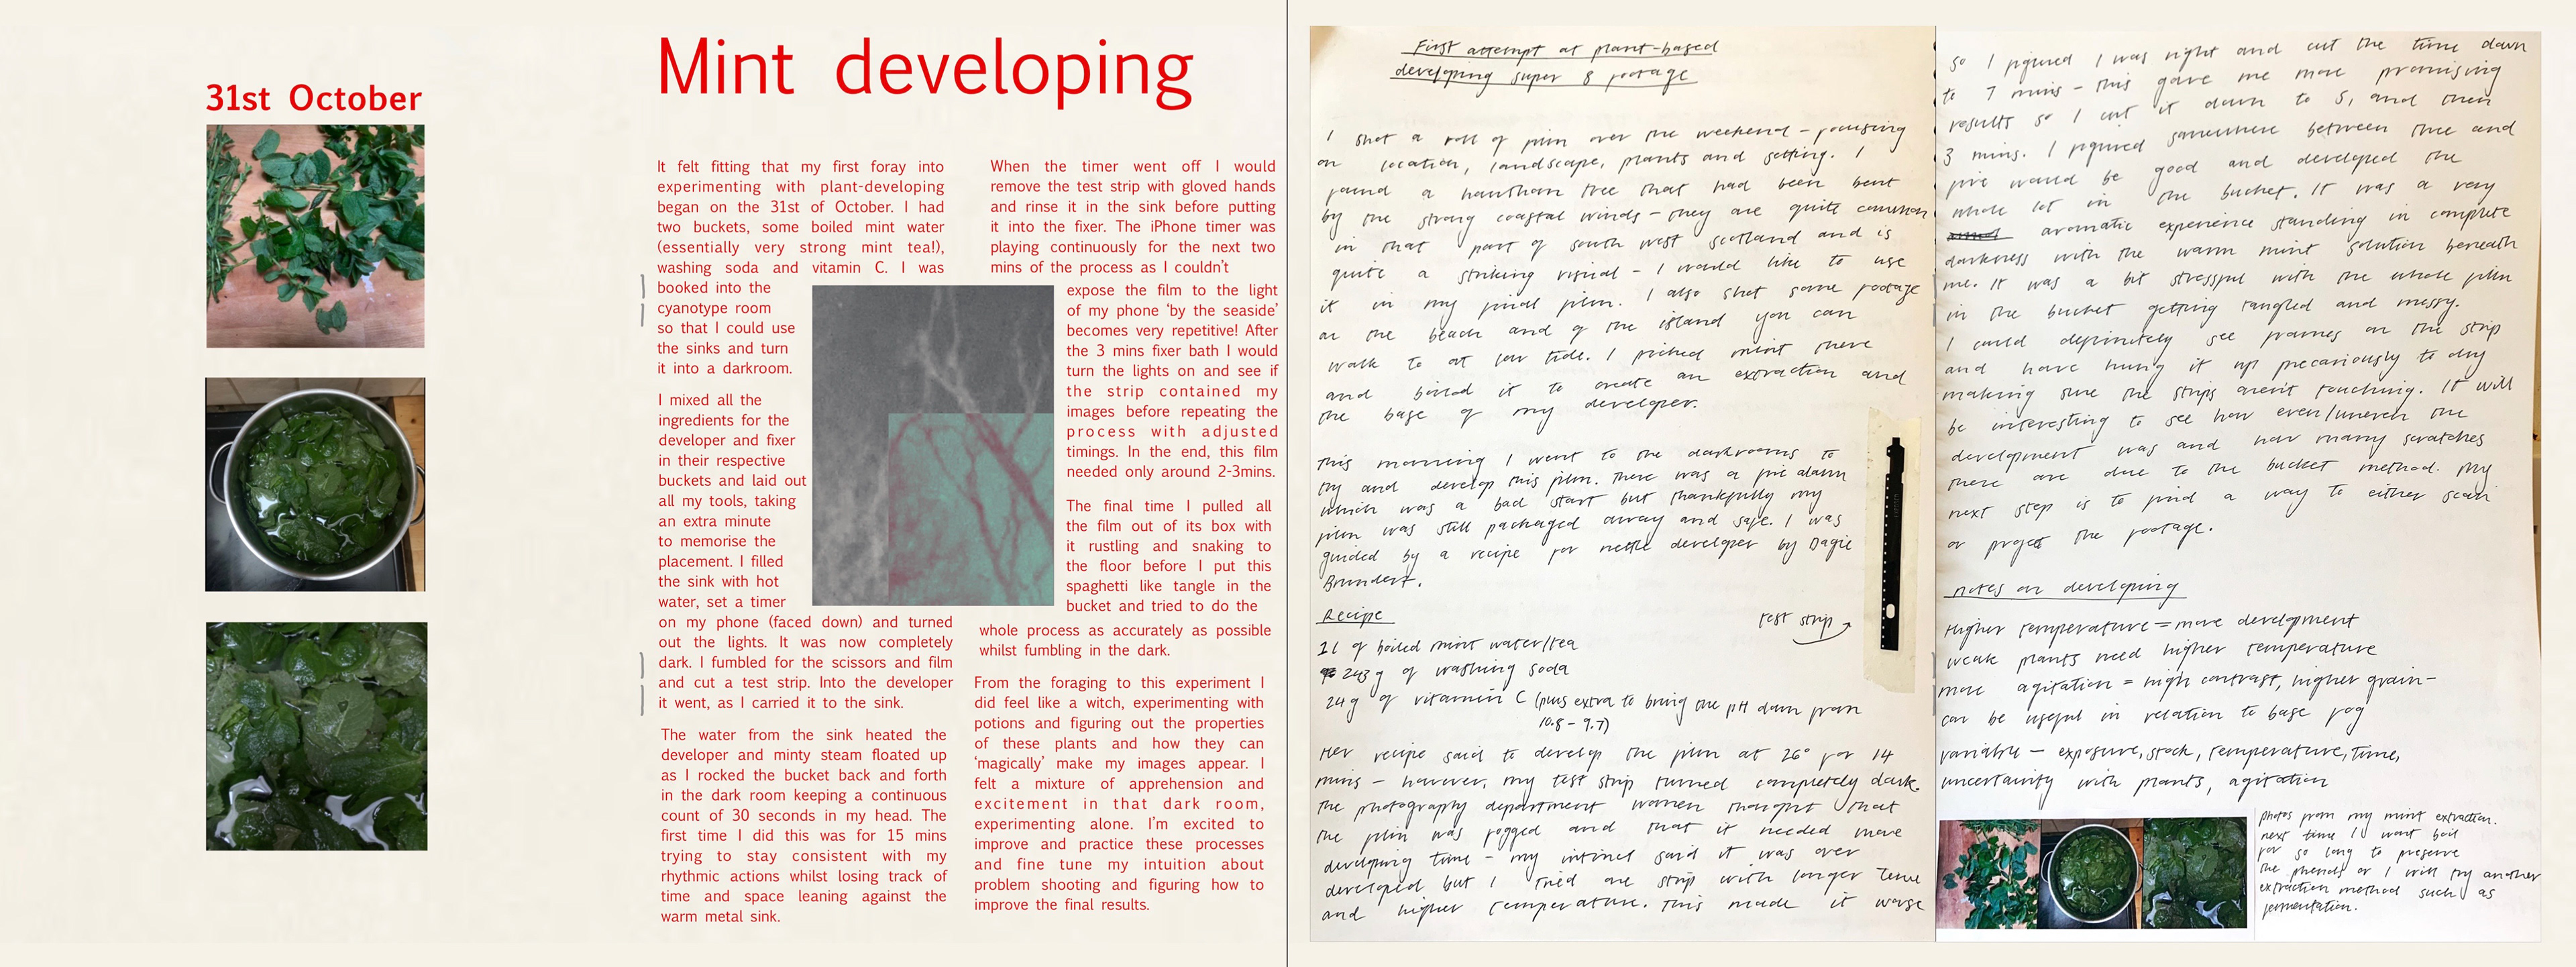 31st October
Mint developing
It felt fitting that my first foray into
experimenting with plant-developing
began on the 31st of October. I had
two buckets, some boiled mint water
(essentially very strong mint tea!),
washing soda and vitamin C. I was
booked into the
cyanotype room
so that I could use
the sinks and turn
it into a darkroom.
I mixed all the
ingredients for the
developer and fixer
in their respective
buckets and laid out
all my tools, taking
an extra minute
to memorise the
placement. I filled
the sink with hot
water, set a timer
on my phone (faced down) and turned
out the lights. It was now completely
dark. I fumbled for the scissors and film
and cut a test strip. Into the developer
it went, as I carried it to the sink.
The water from the sink heated the
developer and minty steam floated up
as I rocked the bucket back and forth
in the dark room keeping a continuous
count of 30 seconds in my head. The
first time I did this was for 15 mins
trying to stay consistent with my
rhythmic actions whilst losing track of
time and space leaning against the
warm metal sink.
When the timer went off I would
remove the test strip with gloved hands
and rinse it in the sink before putting
it into the fixer. The iPhone timer was
playing continuously for the next two
mins of the process as I couldn't
expose the film to the light
of my phone ‘by the seaside’
becomes very repetitive! After
the 3 mins fixer bath I would
turn the lights on and see if
the strip contained my
images before repeating the
process with adjusted
timings. In the end, this film
needed only around 2-3mins.
The final time I pulled all
the film out of its box with
it rustling and snaking to
the floor before I put this
spaghetti like tangle in the
bucket and tried to do the
whole process as accurately as possible
whilst fumbling in the dark.
From the foraging to this experiment I
did feel like a witch, experimenting with
potions and figuring out the properties
of these plants and how they can
‘magically’ make my images appear. I
felt a mixture of apprehension and
excitement in that dark room,
experimenting alone. I’m excited to
improve and practice these processes
and fine tune my intuition about
problem shooting and figuring how to
improve the final results.
First attempt at plant-based
developing super 8 footage
I shot a roll of film over the weekend - focusing
on location, landscape, plants and setting. I
found a hawthorn tree that had been bent
by the strong coastal winds - they are quite common
in that part of south west scotland and is
quite a striking visual - I would like to use
it in my final film. I also shot some footage
on the beach and of the island you can
walk to at low tide. I picked mint there
and boiled it to create an extraction and
the base of my developer.
This morning I went to the darkrooms to
try and develop this film. There was a fire alarm
which was a bad start but thankfully my
film was still packaged away and safe. I was
guided by a recipe for nettle developer by Dagie
Brundert.
Recipe
1l of boiled mint water/tea
243g of washing soda
24g of vitamin C (plus extra to bring the pH down from
10.8 - 9.7)
test strip
Her recipe said to develop the film at 26° for 14
mins - however, my test strip turned completely dark.
The photography department women thought that
the film was fogged and that it needed more
developing time - my intinct said it was over
developed but I tried one strip with longer time
and higher temperature. This made it worse
so I figured I was right and cut the time down
to 7 mins - this gave me more promising
results so I cut it down to 5, and then
3 mins. I figured somewhere between three and
five would be good and developed the
whole lot in the bucket. It was a very
aromatic experience standing in complete
darkness with the warm mint solution beneath
me. It was a bit stressful with the whole film
in the bucket getting tangled and messy.
I could definitely see frames on the strip
and have hung it up precariously to dry
making sure the strips aren't touching. It will
be interesting to see how even/uneven the
development was and how many scratches
there are due to the bucket method. My
next step is to find a way to either scan
or project the footage.
notes on developing
Higher temperature = more development
weak plants need higher temperature
more agitation = high contrast, higher grain-
can be useful in relation to base fog
variable - exposure, stock, temperature, time,
uncertainity with plants, agitation
photos from my mint extraction.
next time I wont boil
for so long to preserve
the phenols or I will try another
extraction method such as
fermentation.